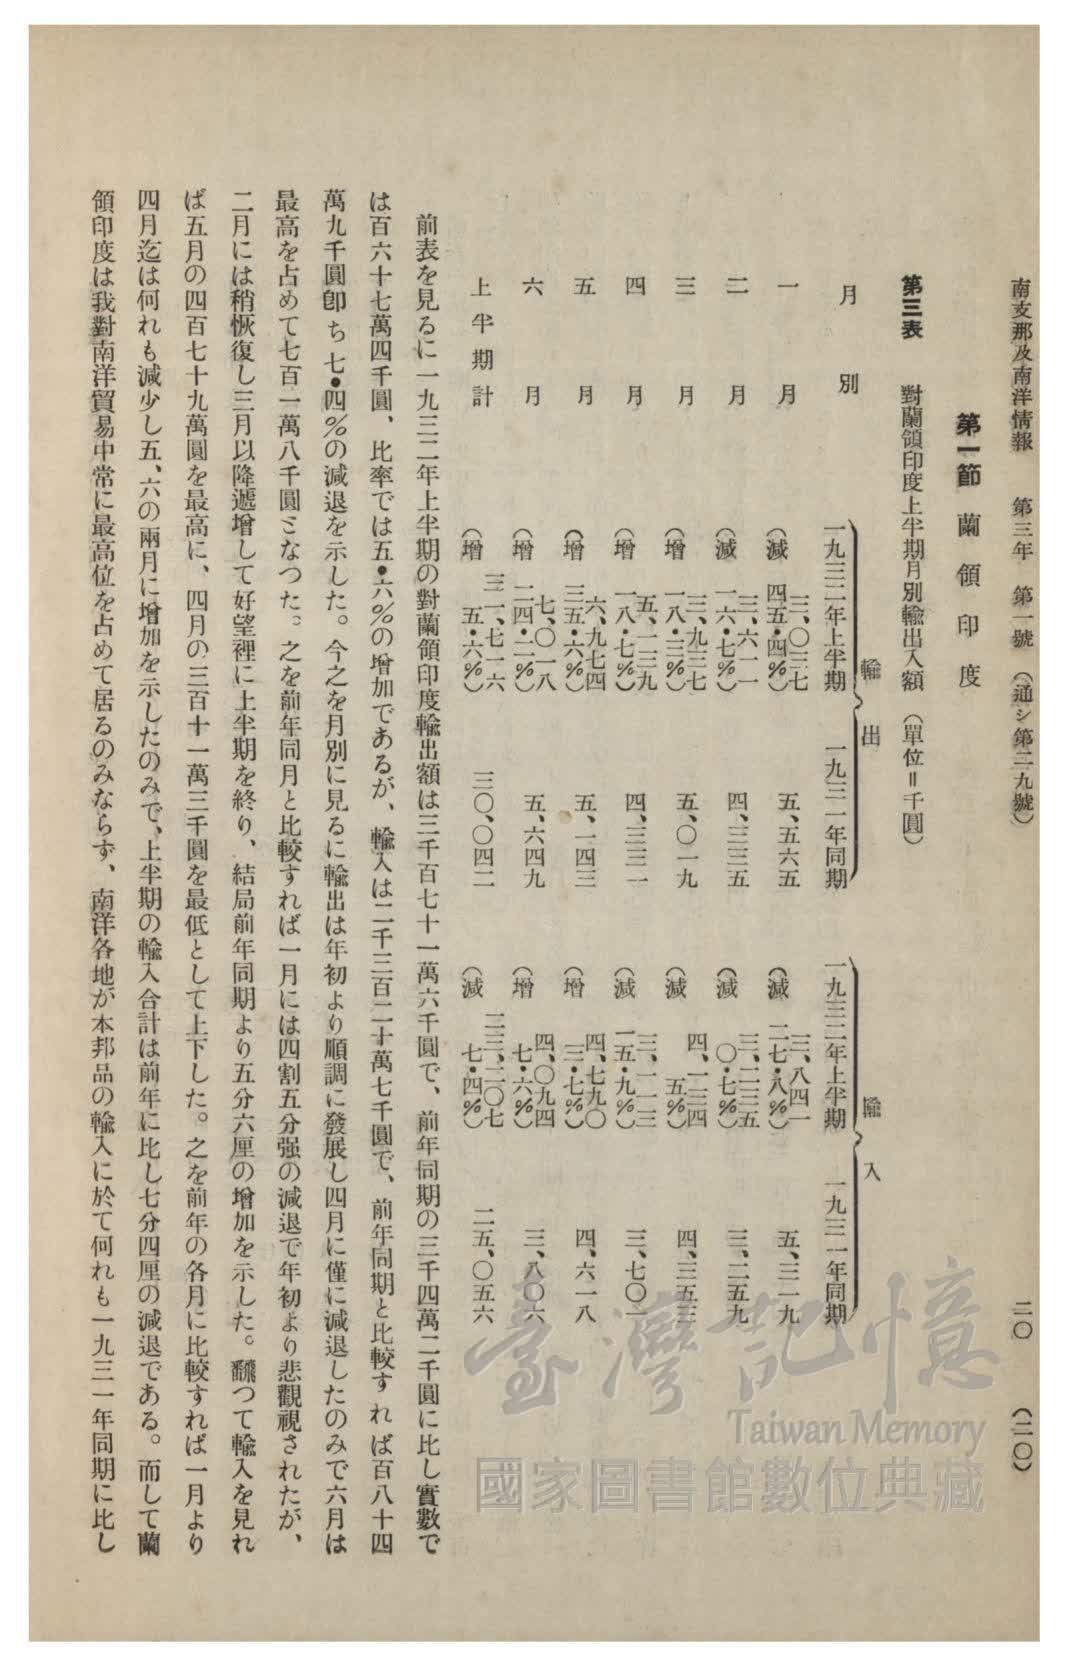 南支那及南洋情報　第三年　第一號　（通シ第二九號）　二〇　（二〇）
第一節　蘭領印度
第三表　對蘭領印度上半期月別輸出入額　（單位＝千圓）
輸出　輸入
月別　一九三二年上半期　一九三一年同期　一九三二年上半期　一九三一年同期
一月　三、〇三七　（減　四五・四％）　五、五六五　三、八四一　（減　二七・八％）　五、三一九
二月　三、六一一　（減　一六・七％）　四、三三五　三、二三五　（減　〇・七％）　三、二五九
三月　五、九三七　（增　一八・三％）　五、〇一九　四、一三四　（減　五％）　四、三五三
四月　五、一三九　（增　一八・七％）　四、三三一　三、一一三　（減　一五・九％）　三、七〇一
五月　六、九七四　（增　三五・六％）　五、一四三　四、七九〇　（增　三・七％）　四、六一八
六月　七、〇一八　（增　二四・二％）　五、六四九　四、〇九四　（增　七・六％）　三、八〇六
上半期計　三一、七一六　（增　五・六％）　三〇、〇四二　二三、二〇七　（減　七・四％）　二五、〇五六
前表を見るに一九三二年上半期の對蘭領印度輸出額は三千百七十一萬六千圓で、前年同期の三千四萬二千圓に比し實數で
は百六十七萬四千圓、比率では五・六％の增加であるが、輸入は二千三百二十萬七千圓で、前年同期と比較すれば百八十四
萬九千圓卽ち七・四％の減退を示した。今之を月別に見るに輸出は年初より順調に發展し四月に僅に減退したのみで六月は
最高を占めて七百一萬八千圓ミなつた。之を前年同月と比較すれば一月には四割五分强の減退で年初より悲觀視されたが、
二月には稍恢復し三月以降遞增して好望裡に上半期を終り、結局前年同期より五分六厘の增加を示した。飜つて輸入を見れ
ば五月の四百七十九萬圓を最高に、四月の三百十一萬三千圓を最低として上下した。之を前年の各月に比較すれば一月より
四月迄は何れも減少し五、六の兩月に增加を示したのみで、上半期の輸入合計は前年に比し七分四厘の減退である。而して蘭
領印度は我對南洋貿易中常に最高位を占めて居るのみならず、南洋各地が本邦品の輸入に於て何れも一九三一年同期に比し
臺灣記憶
Taiwan Memory
國家圖書館數位典藏